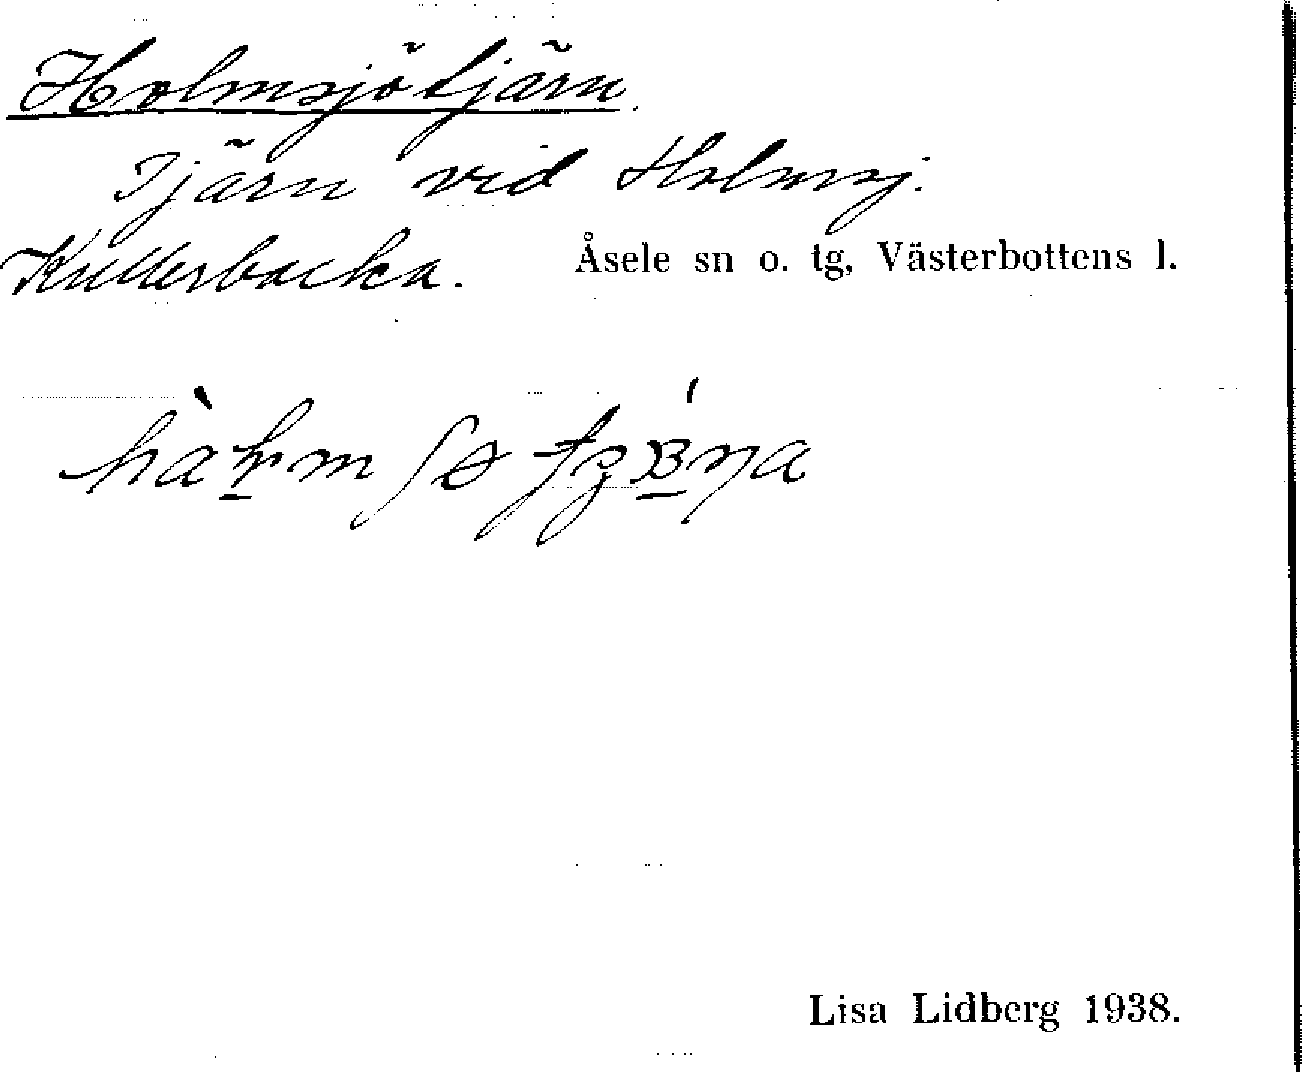 Holmsjötjärn.
Tjärn vid Holmsj.
Kullerbacka. Åsele sn o. tg, Västerbottens l.
Lisa Lidberg 1938.